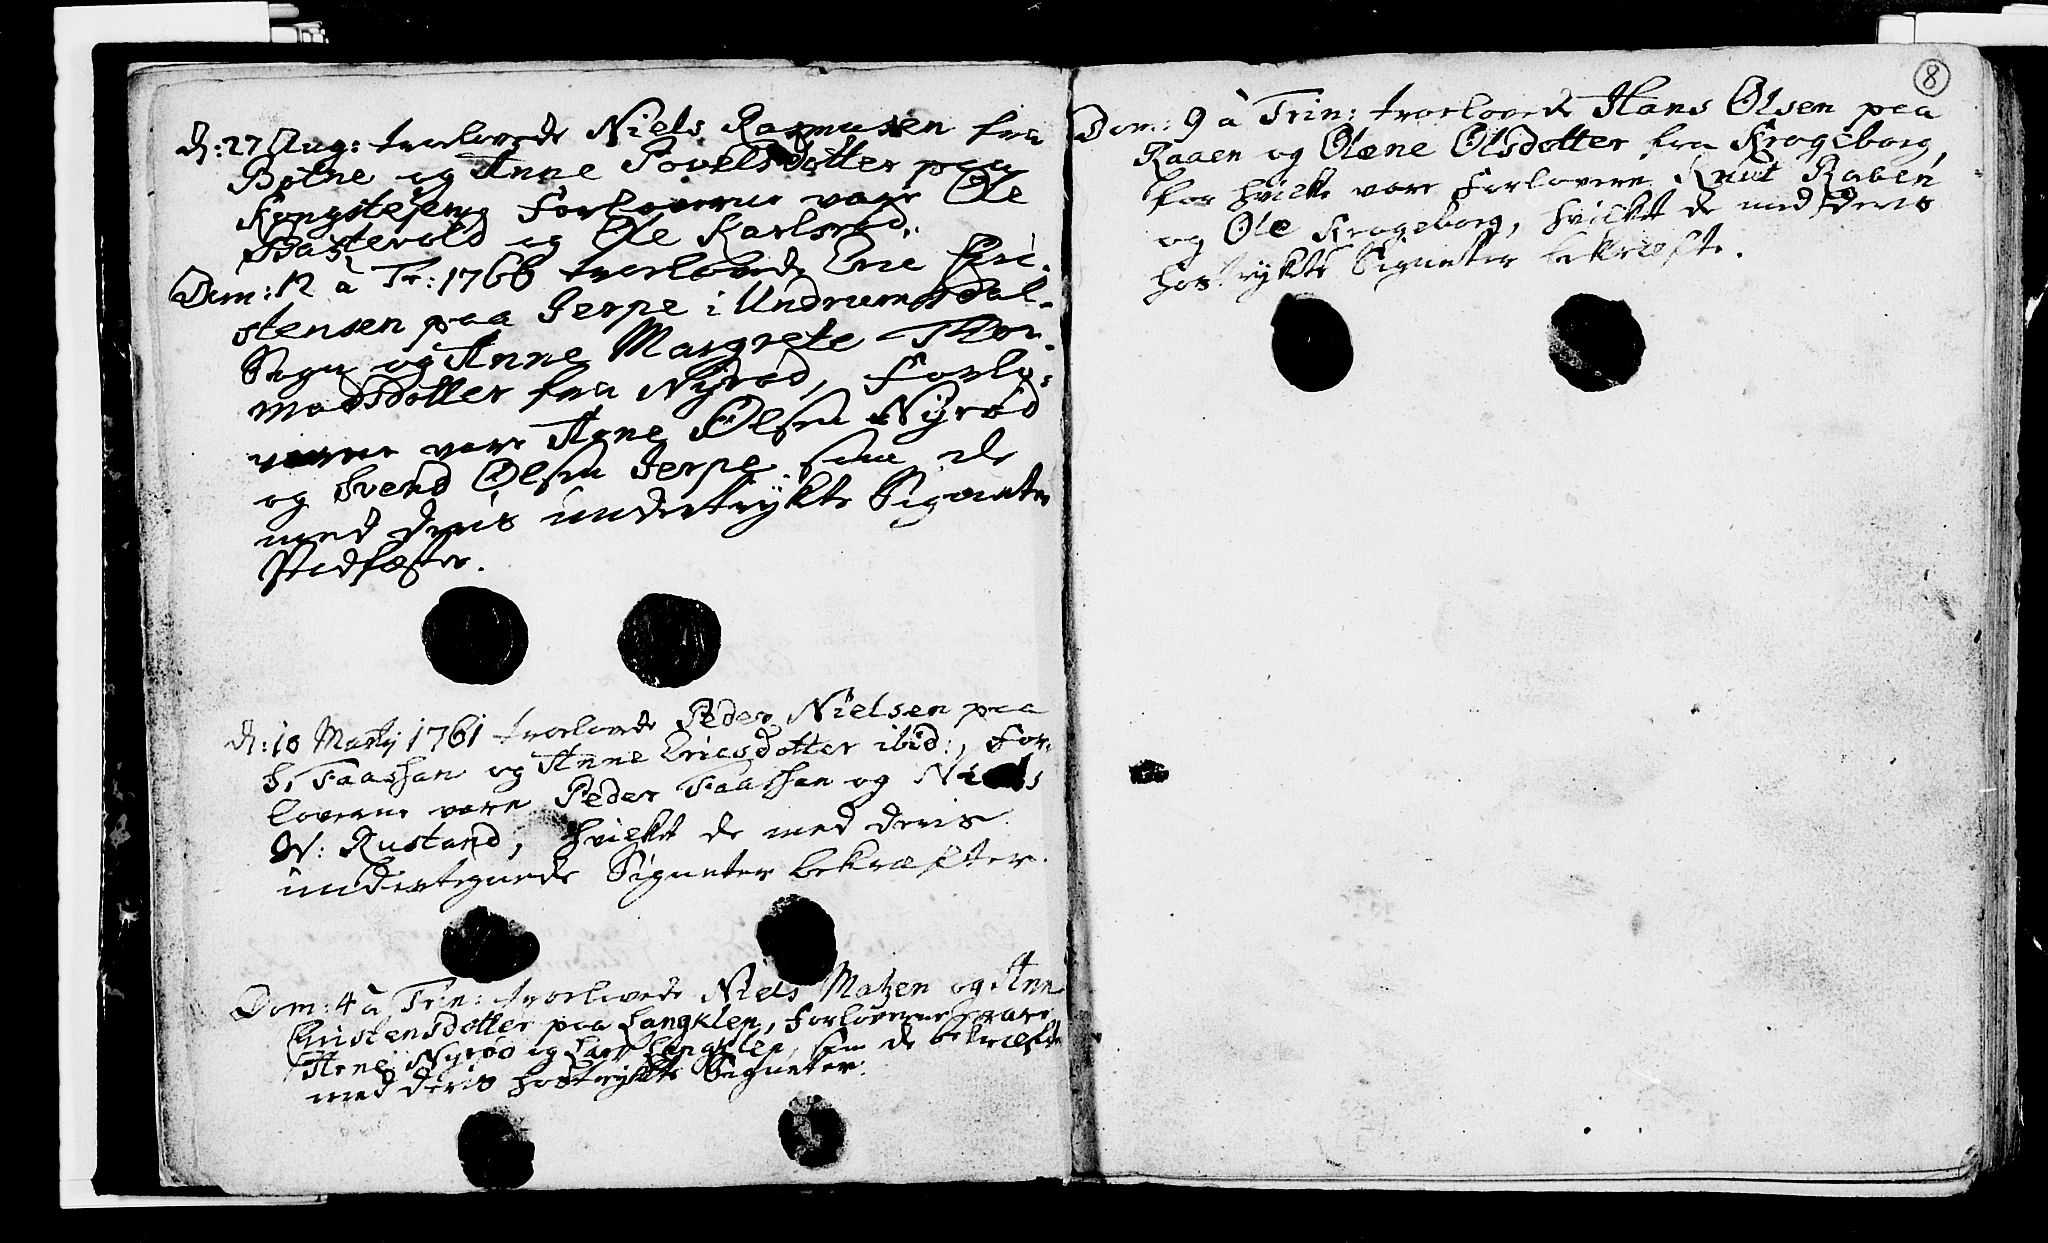 d: 27 Aug: troelovede Niels Rasmusen fra
Bøtne og Anne Povelsdotter paa
Forloverne vare Ole
Basterold og Ole Karlsrød.
Dom: 12 à Tr: 1760 troelovede Eric Chri-
stensen paa Jerpe i Undrumsdal-
Sogn og Anne Margrete Thor-
madsdotter fra Nyrød, Forlo-
verne vare Arne Olsen Nyrød
og Svend Olsen Jerpe som de
med deris undertrykte Signeter
Stadfæster.
d: 18 Martij 1761 troelovede Peder Nielsen paa
S. Faasfan og Anne Ericsdotter ibid:, For-
loverne vare Peder Faasfan og Niels
W: Rustand, hvilket de med deris
undertegnede Signeter bekræfter.
Dom: 4 à Trin: troelovede Niels Matzen og Anne
Christensdotter paa Langklep, Forloverne vare
Arne Nyrød og Lars Langklep, som de bekræfte
med deris hostrykte Signeter.
8
Dom: 9 à Trin: troelovede Hans Olsen paa
Raaen og Olene Olsdotter fra Krogeborg,
for hvilke vare Forlovere Knut Raaen
og Ole Krogeborg, hvilket de med deris
hostrykte Signeter bekræfte.